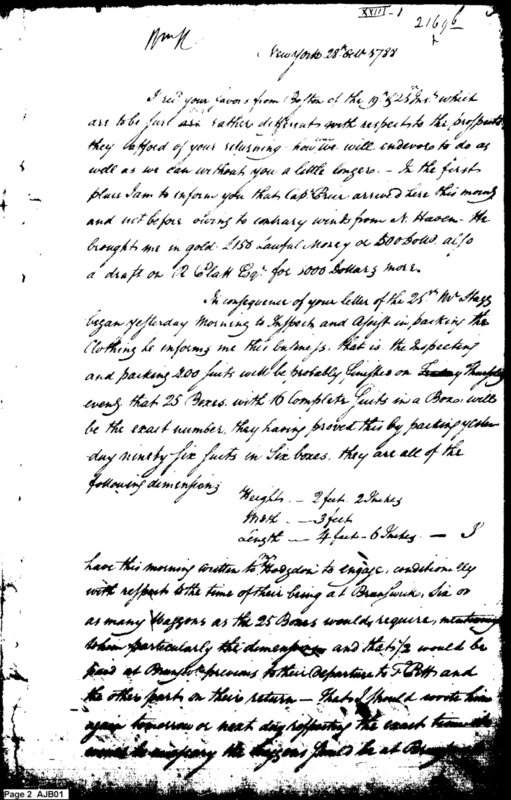 XXIII-1
21696
New York 28th Octr 1788
I recd your favors from Boston of the 19th & 25th Inst. which
are to be sure rather different with respects to the prospects
they afford of your returning how we will endevore to do as
well as we can without you a little longer. - In the first
place I am to inform you that Capt Brier arrived here this morng
and not before owing to contrary winds from N Haven. He
brought me in gold £150 Lawful Money or 500 Dolls. also
a draft on R Platt Esqr for 1000 Dollars more.
In consequence of your letter of the 25th Mr Stagg
began yesterday Morning to Inspect and Assist in packing the
Clothing he informs me this business, that is the Inspecting
and packing 200 suits will be probably finished on Thursday
eveng that 25 Boxes, with 16 Complete Suits in a Box will
be the exact number, they having proved this by packing yester
day ninety six suits in Six boxes, they are all of the
following dimensions
Heighth - 2 feet 2 Inches
Width - 3 feet
Length - 4 feet - 6 Inches - I
have this morning written to Mr Hodgdon to engage, conditionally
with respect to the time of their being at Brunswick, Six or
as many Waggons as the 25 Boxes would require, mentioning
to him particularly the dimensions and that 1/2 would be
paid at Brunswk previous to their Departure to F Pitt and
the other part on their return - that I should wrote him
again tomorrow or next day respecting the exact time
would be necessary the Waggons should be at
Page 2 AJB01